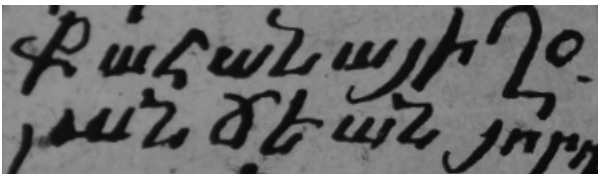 Քահանայի Ղօ
յանճեան յորո